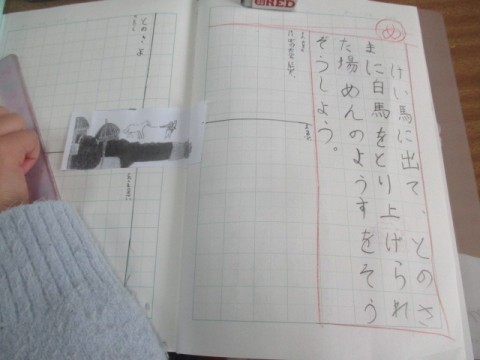 RED
め
けい馬に出て、とのさ
まに白馬をとり上げられ
た場めんのようすをそう
ぞうしよう。